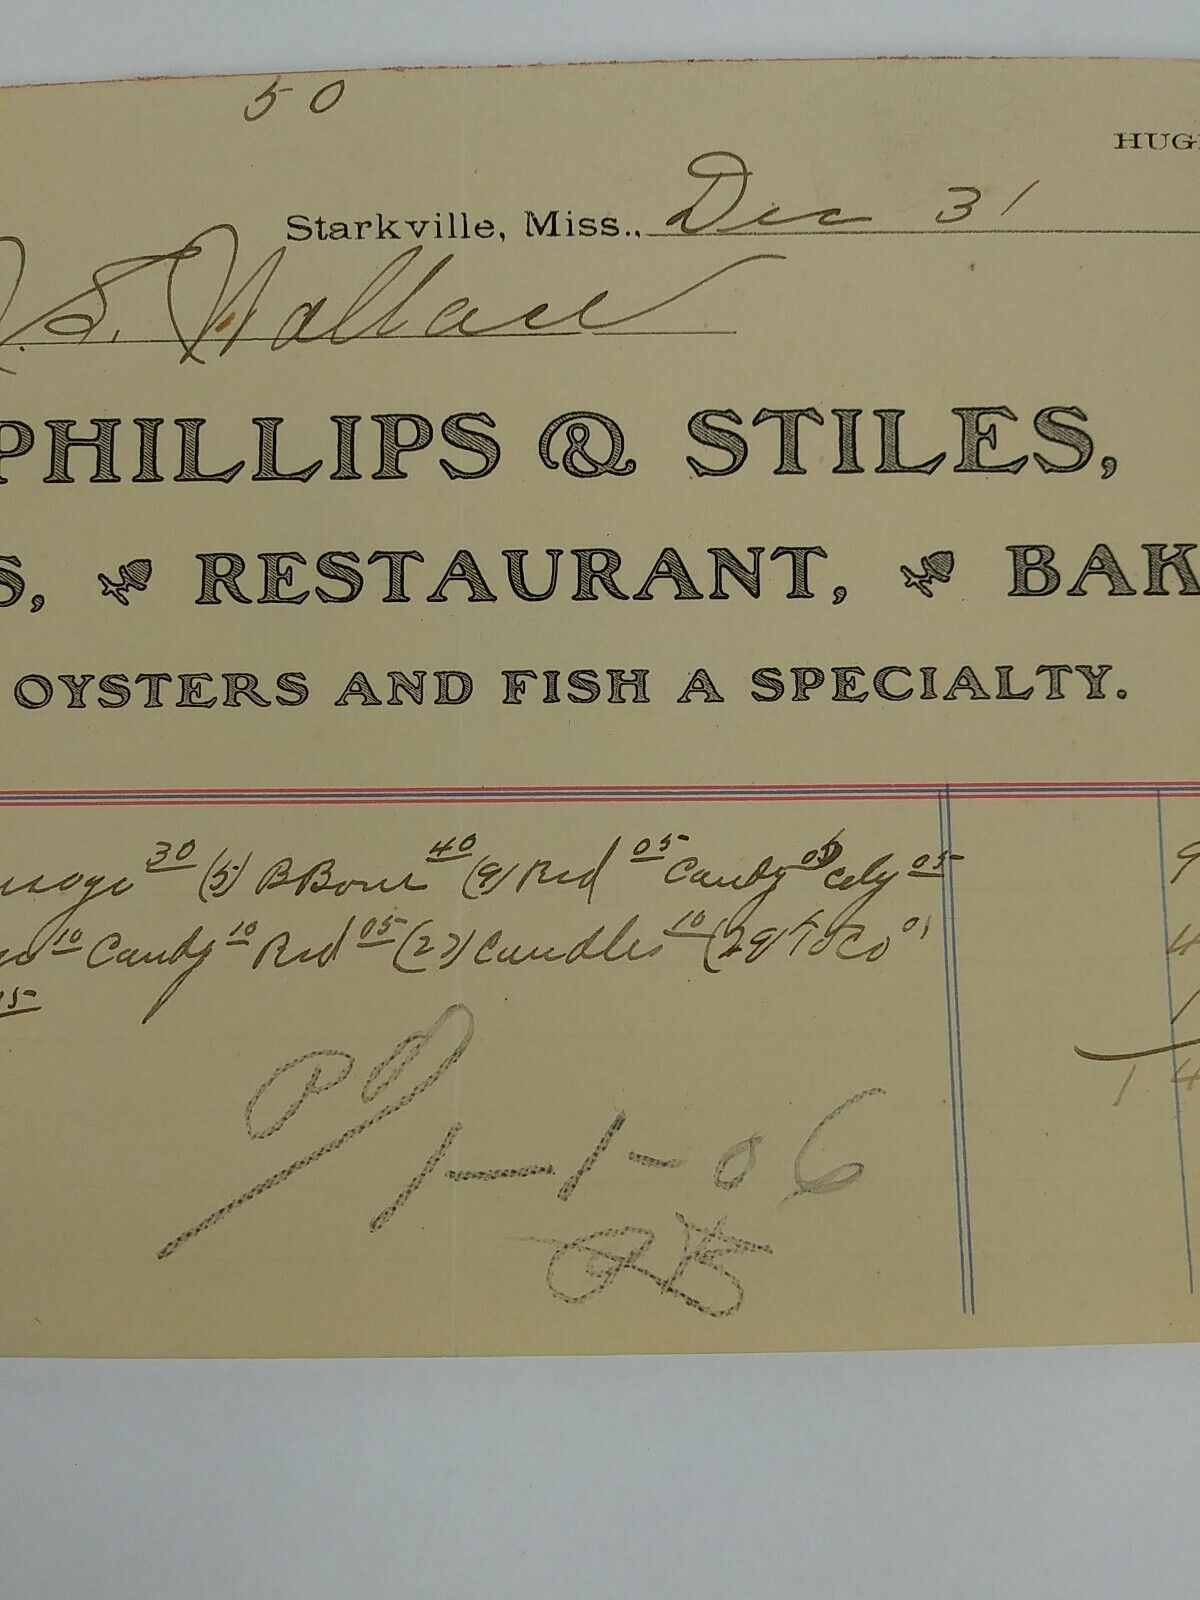 50
HUG
Starkville, Miss., Dec 31
S. Wallace
PHILLIPS & STILES,
S, RESTAURANT, BAK
OYSTERS AND FISH A SPECIALTY.
30 (5) B Bone 40 (9) Rad 05 Candy 05 Cely 05 9
10 Candy 10 Rad 05 (27) Candles 10 (29) ToCo 01 4
15 1
1 4
Pd 1-1-06